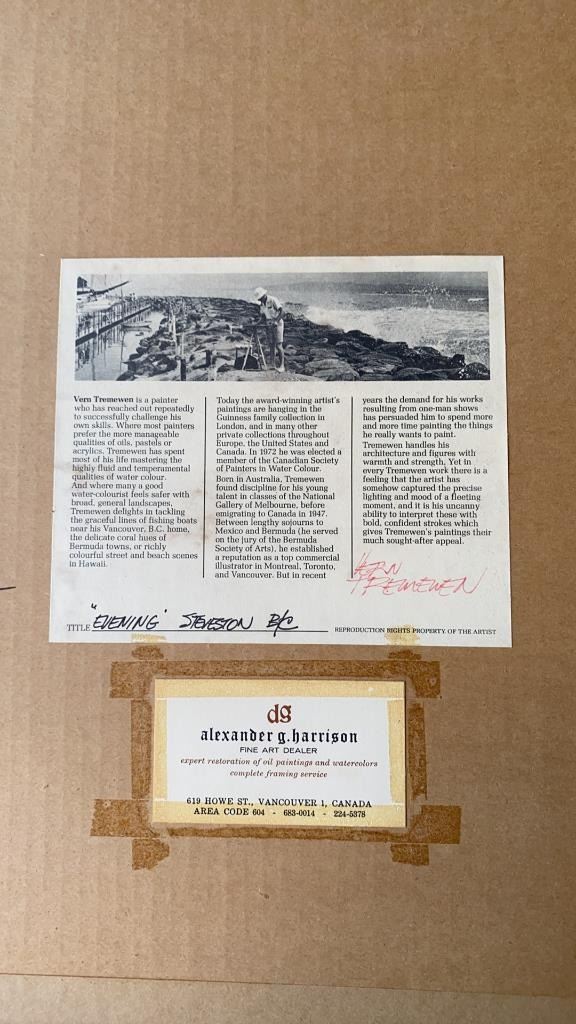 Vern Tremewen is a painter
who has reached out repeatedly
to successfully challenge his
own skills. Where most painters
prefer the more manageable
qualities of oils, pastels or
acrylics, Tremewen has spent
most of his life mastering the
highly fluid and temperamental
qualities of water colour.
And where many a good
water-colourist feels safer with
broad, general landscapes,
Tremewen delights in tackling
the graceful lines of fishing boats
near his Vancouver, B.C. home,
the delicate coral hues of
Bermuda towns, or richly
colourful street and beach scenes
in Hawaii.
Today the award-winning artist's
paintings are hanging in the
Guinness family collection in
London, and in many other
private collections throughout
Europe, the United States and
Canada. In 1972 he was elected a
member of the Canadian Society
of Painters in Water Colour.
Born in Australia, Tremewen
found discipline for his young
talent in classes of the National
Gallery of Melbourne, before
emigrating to Canada in 1947.
Between lengthy sojourns to
Mexico and Bermuda (he served
on the jury of the Bermuda
Society of Arts), he established
a reputation as a top commercial
illustrator in Montreal, Toronto,
and Vancouver. But in recent
years the demand for his works
resulting from one-man shows
has persuaded him to spend more
and more time painting the things
he really wants to paint.
Tremewen handles his
architecture and figures with
warmth and strength. Yet in
every Tremewen work there is a
feeling that the artist has
somehow captured the precise
lighting and mood of a fleeting
moment, and it is his uncanny
ability to interpret these with
bold, confident strokes which
gives Tremewen's paintings their
much sought-after appeal.
VERN
TREMEWEN
TITLE "EVENING" STEVESTON B/C
REPRODUCTION RIGHTS PROPERTY OF THE ARTIST
dg
alexander g. harrison
FINE ART DEALER
expert restoration of oil paintings and watercolors
complete framing service
619 HOWE ST., VANCOUVER 1, CANADA
AREA CODE 604 - 683-0014 - 224-5378